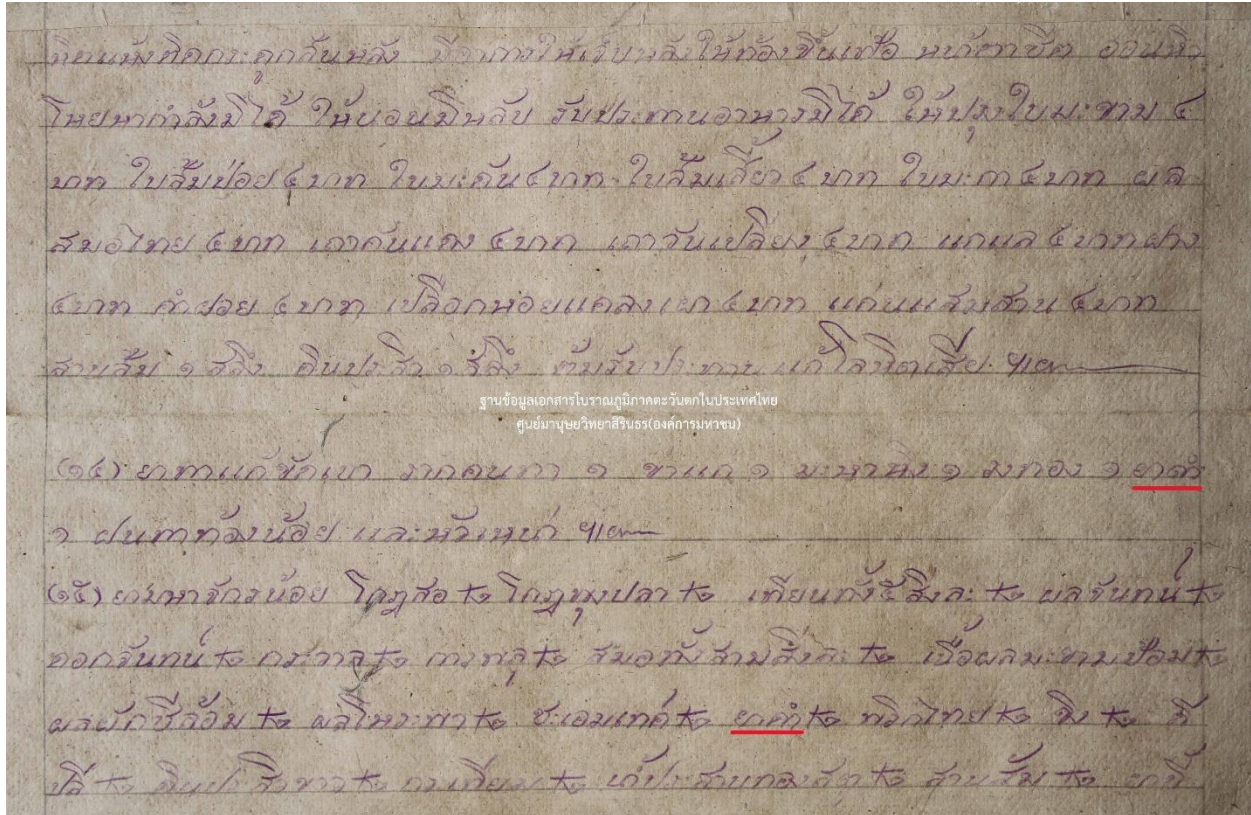 ให้แห้งติดกระดูกสันหลัง มีอาการให้เจ็บหลังให้ท้องขึ้นเฟ้อ หน้าตาซีด
โหยหากำลังมิได้ ให้นอนมิหลับ รับประทานอาหารมิได้ ให้ปรุงใบมะขาม ๔
บาท ใบส้มป่อย ๔ บาท ใบมะดัน ๔ บาท ใบส้มเสี้ยว ๔ บาท ใบมะกา ๔ บาท ผล
สมอไทย ๔ บาท เถาคันแดง ๔ บาท เถาวันเปลียง ๔ บาท แกแล ๔ บาท ฝาง
๔ บาท คำฝอย ๔ บาท เปลือกหอยแคลงเผา ๔ บาท แก่นแสมสาน ๔ บาท
สานส้ม ๑ สลึง ดินประสิว ๑ สลึง ต้มรับประทาน แก้โลหิตเสีย ฯ
ฐานข้อมูลเอกสารโบราณภูมิภาคตะวันตกในประเทศไทย
ศูนย์มานุษยวิทยาสิรินธร(องค์การมหาชน)
(๑๔) ยาทาแก้ขัดเบา รากคนทา ๑ ๑ มะหาหิง ๑ รงทอง ๑ ยาดำ
๑ ฝนทาท้องน้อย และหัวเหน่า ฯ
(๑๕) ยามหาจักรน้อย โกฎสอ โกฎพุงปลา เทียนทั้ง ๕ สิ่งละ ผลจันทน์
ดอกจันทน์ กระวาน กานพลุ สมอทั้งสามสิ่งละ เนื้อผลมะขามป้อม
ผลผักชีล้อม ผลโหระพา ชะเอมเทศ ยาดำ พริกไทย ขิง ดี
ปลี ดินประสิวขาว กระเทียม สานส้ม